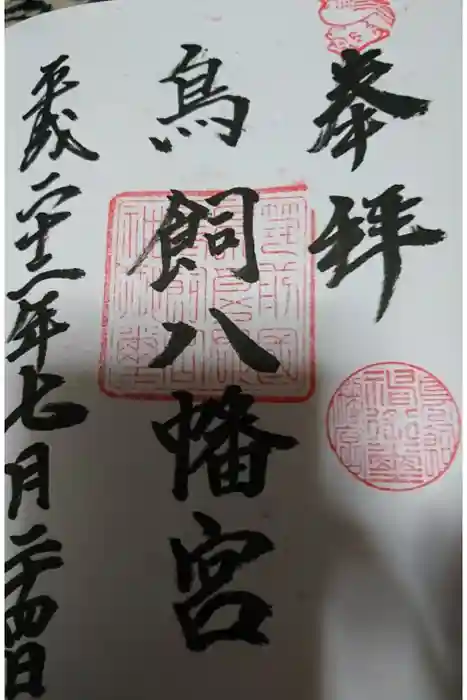 奉拝
鳥飼八幡宮
平成二十二年七月二十四日